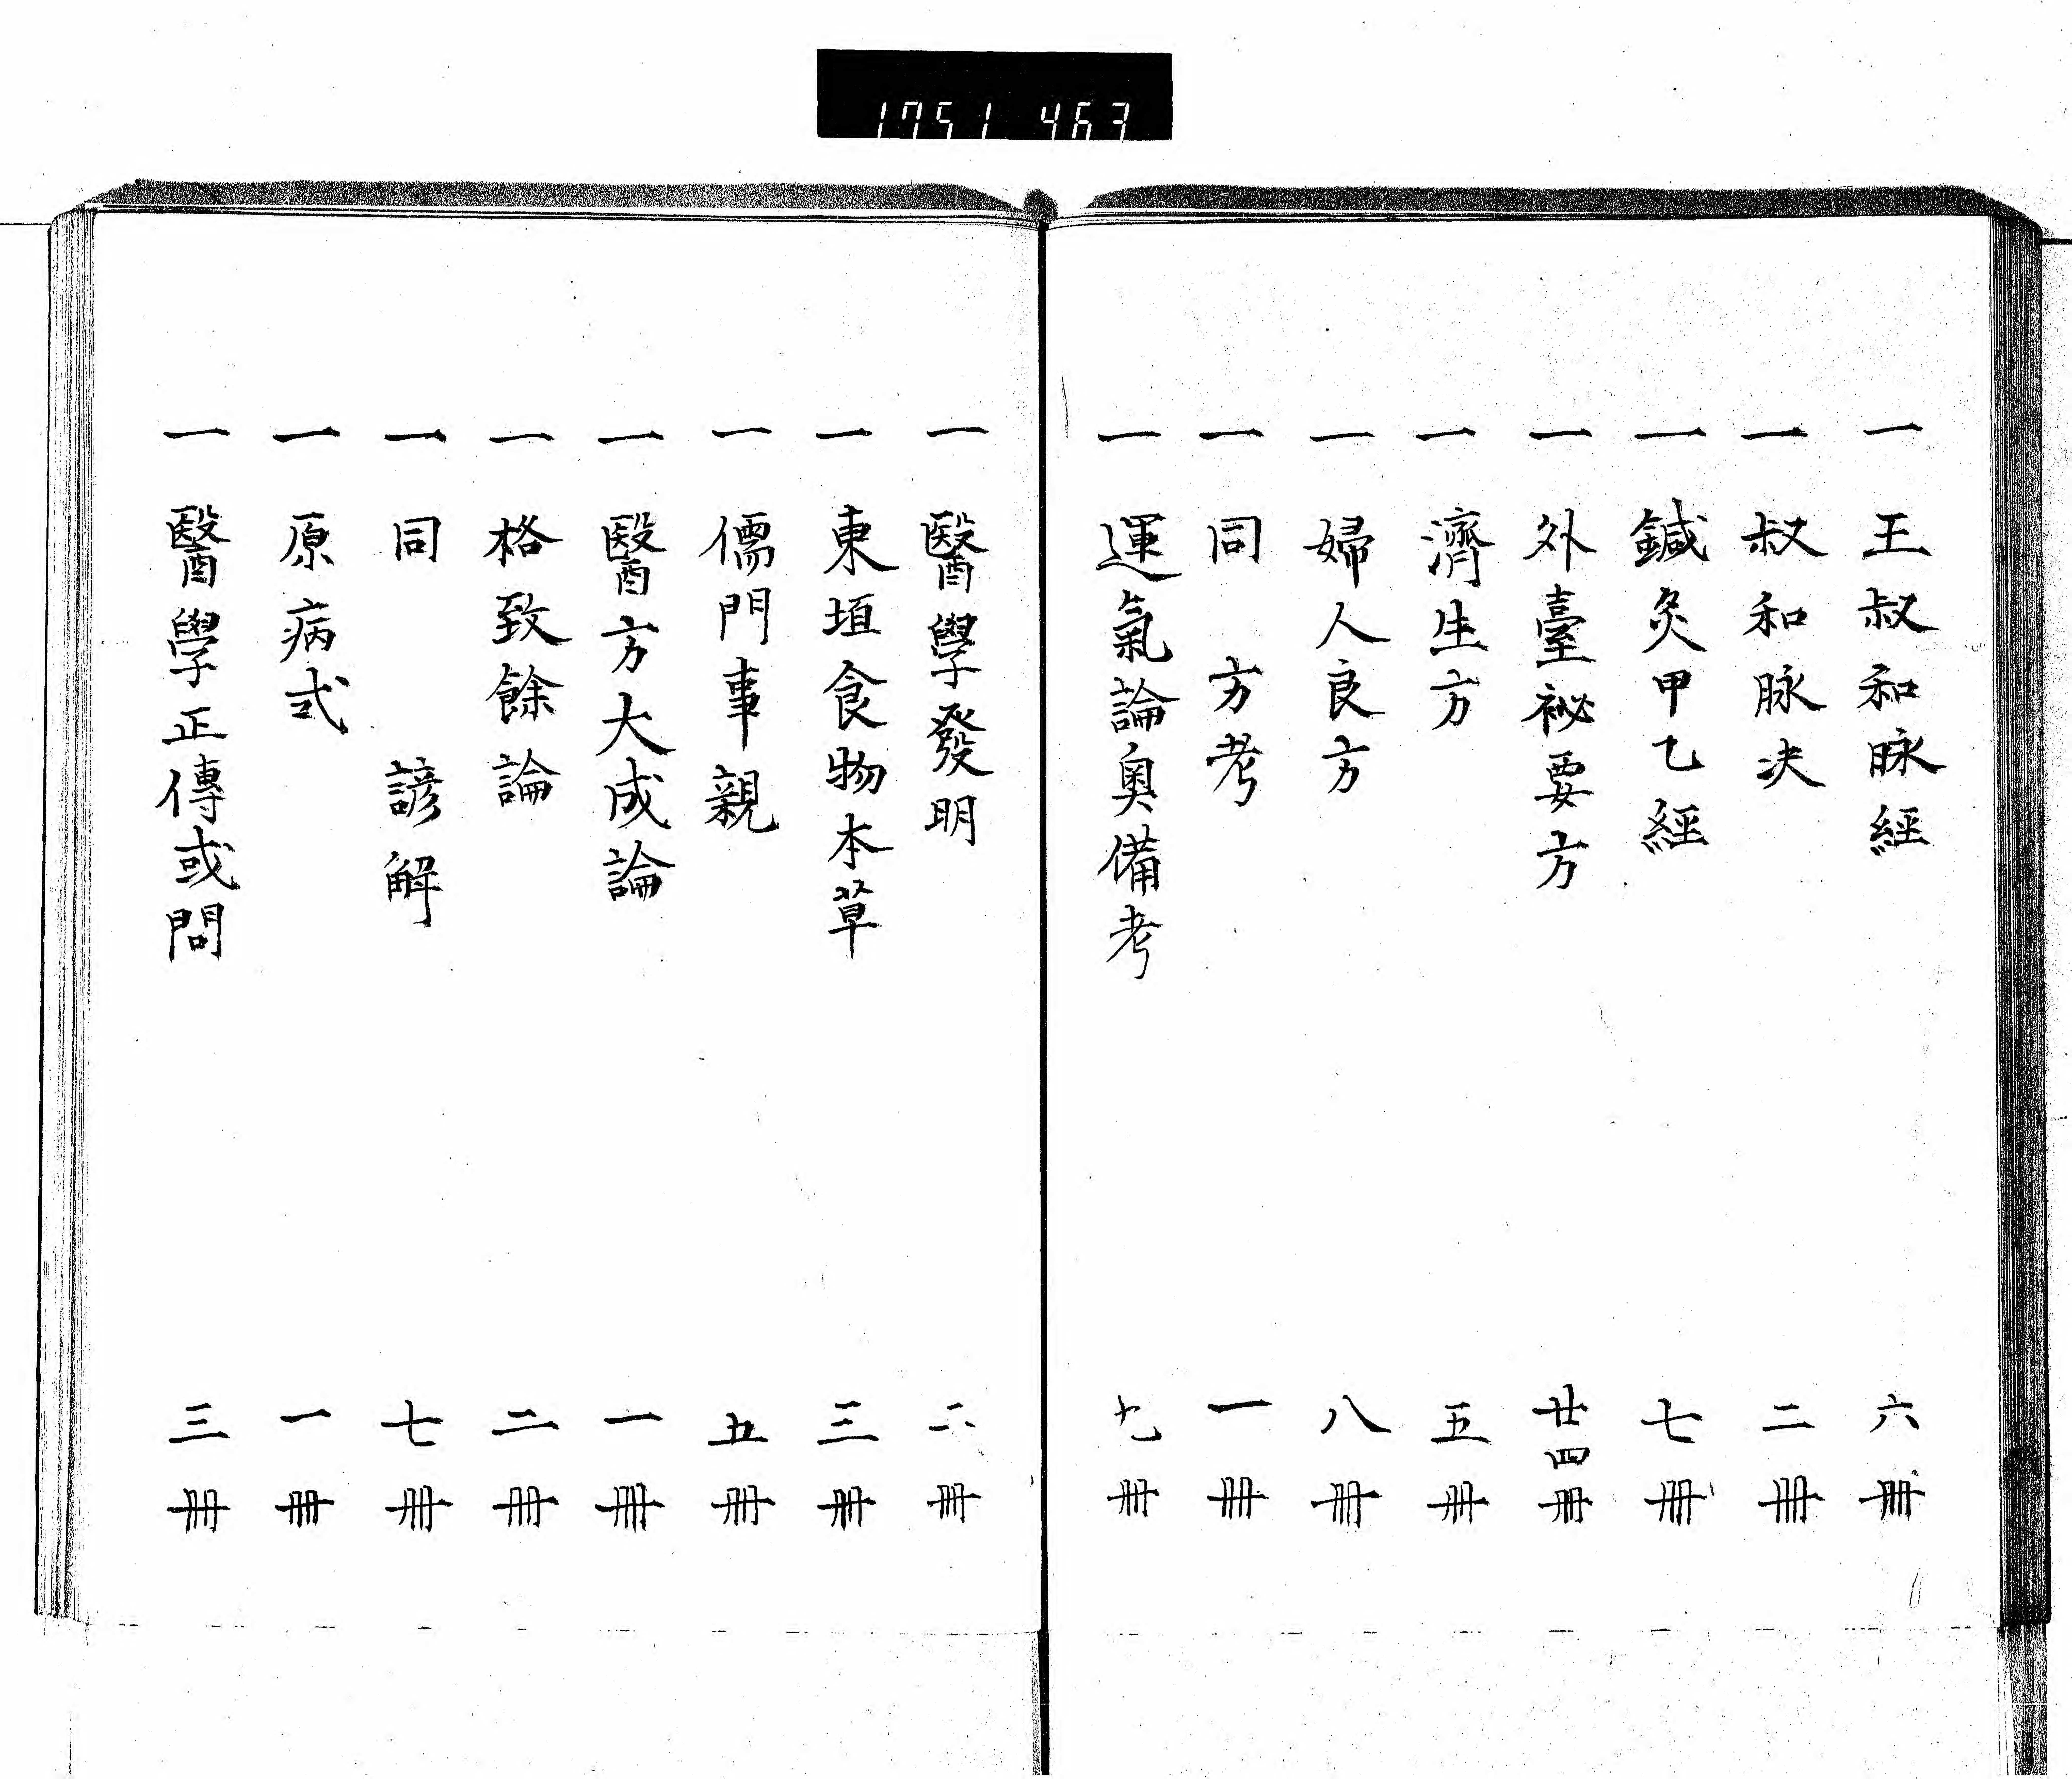 1751 463
一 王叔和脉經 六冊
一 叔和脉决 二冊
一 鍼灸甲乙經 七冊
一 外臺祕要方 廿四冊
一 濟生方 五冊
一 婦人良方 八冊
一 同 方考 一冊
一 運氣論奥備考 九冊
一 醫學發明 二冊
一 東垣食物本草 三冊
一 儒門事親 五冊
一 醫方大成論 一冊
一 格致餘論 二冊
一 同 諺解 七冊
一 原病式 一冊
一 醫學正傳或問 三冊